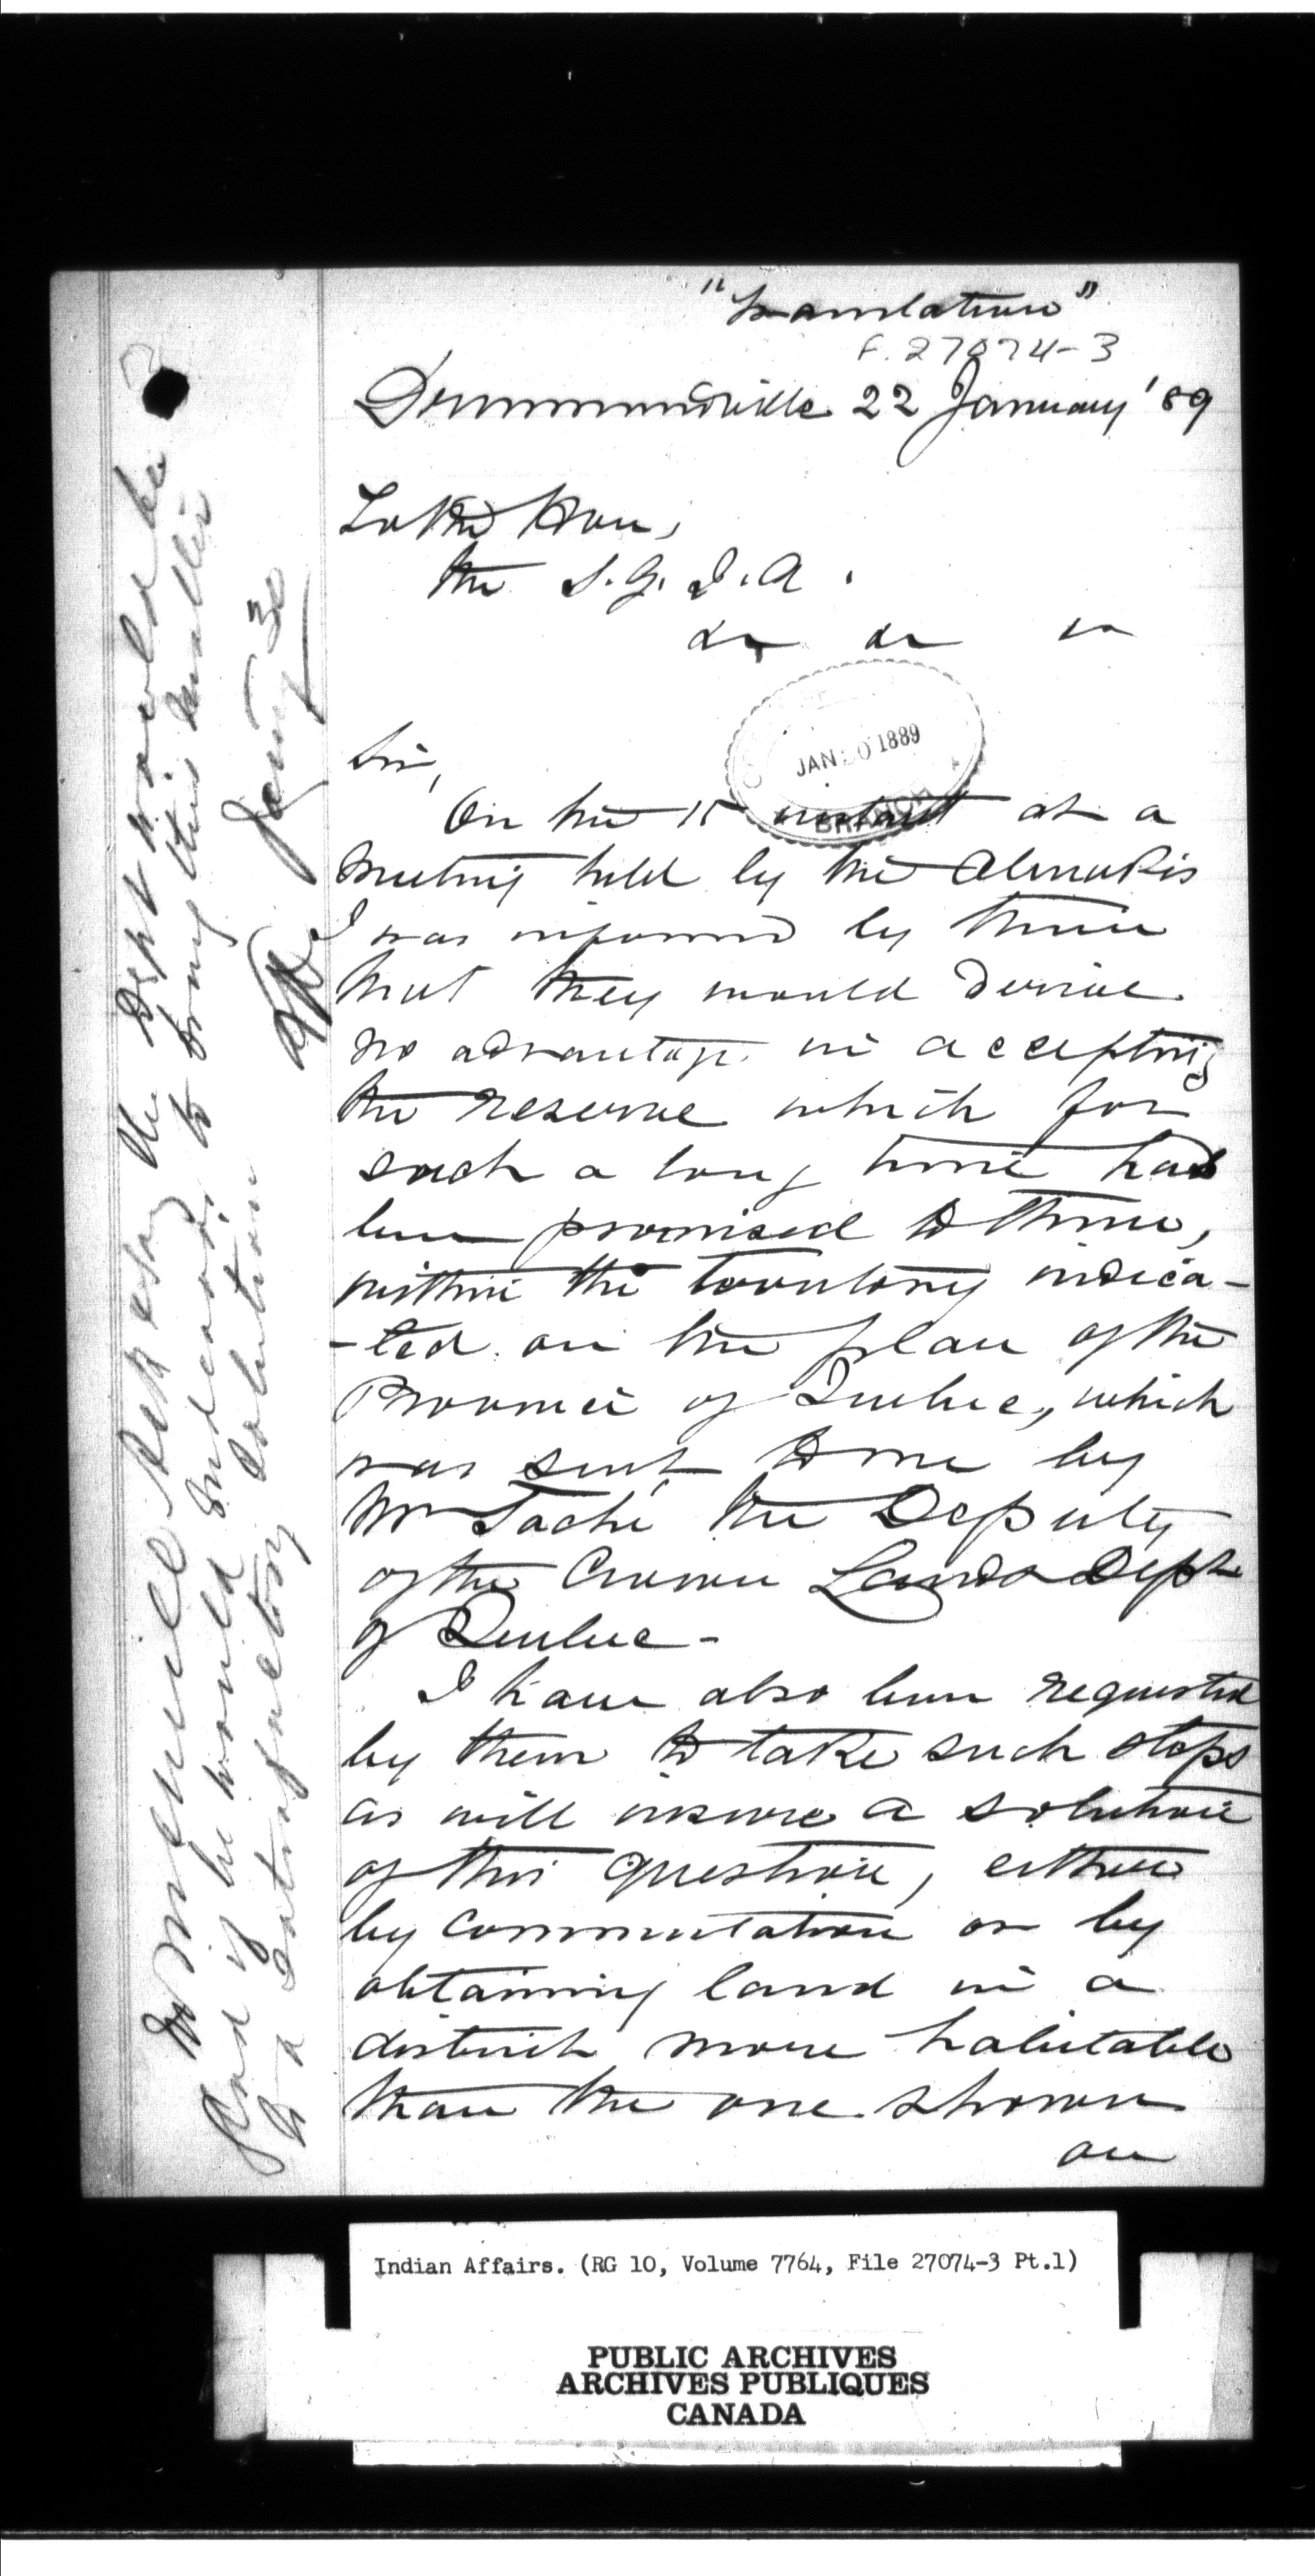 "Translation"
F. 27074-3
Drummondville 22 January '89
To the Hon,
the S. G. I. A.
&c &c &c
JAN 30 1889
BRANCH
Sir,
On the 15 instant at a
meeting held by the Abenakis
I was informed by them
that they would derive
no advantage in accepting
the reserve which for
such a long time had
been promised to them,
within the territory indica-
-ted on the plan of the
Province of Quebec, which
was sent to me by
Mr Taché the Deputy
of the Crown Lands Dept
of Quebec -
I have also been requested
by them to take such steps
as will insure a solution
of this question, either
by commutation or by
obtaining land in a
district more habitable
than the one shown
on
Mr McNeill the Dept would be
glad if he would endeavor to bring this matter
to a satisfactory solution
Jany 30
Indian Affairs. (RG 10, Volume 7764, File 27074-3 Pt.1)
PUBLIC ARCHIVES
ARCHIVES PUBLIQUES
CANADA